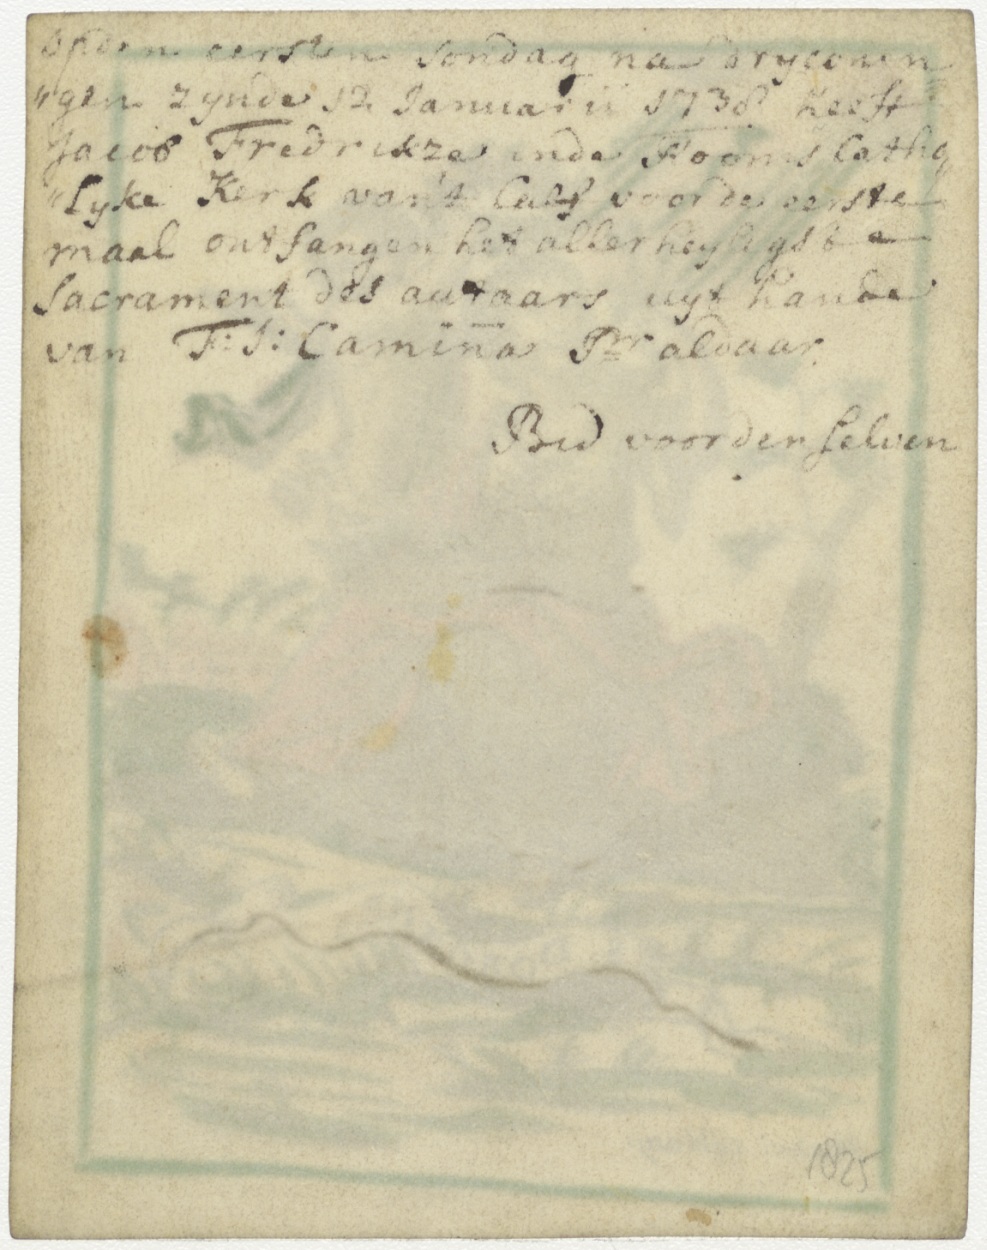 Opden eersten Sondag na dryconin
"gen zynde 12 Januarii 1738 heeft
Jacob Fredrikze inde Rooms Catho
"Lyke Kerk van't Calf voorde eerste
maal ontfangen het allerheyligste
Sacrament des autaars uyt hande
van F: J: Camina Pr aldaar.
Bid voorden selven
1825